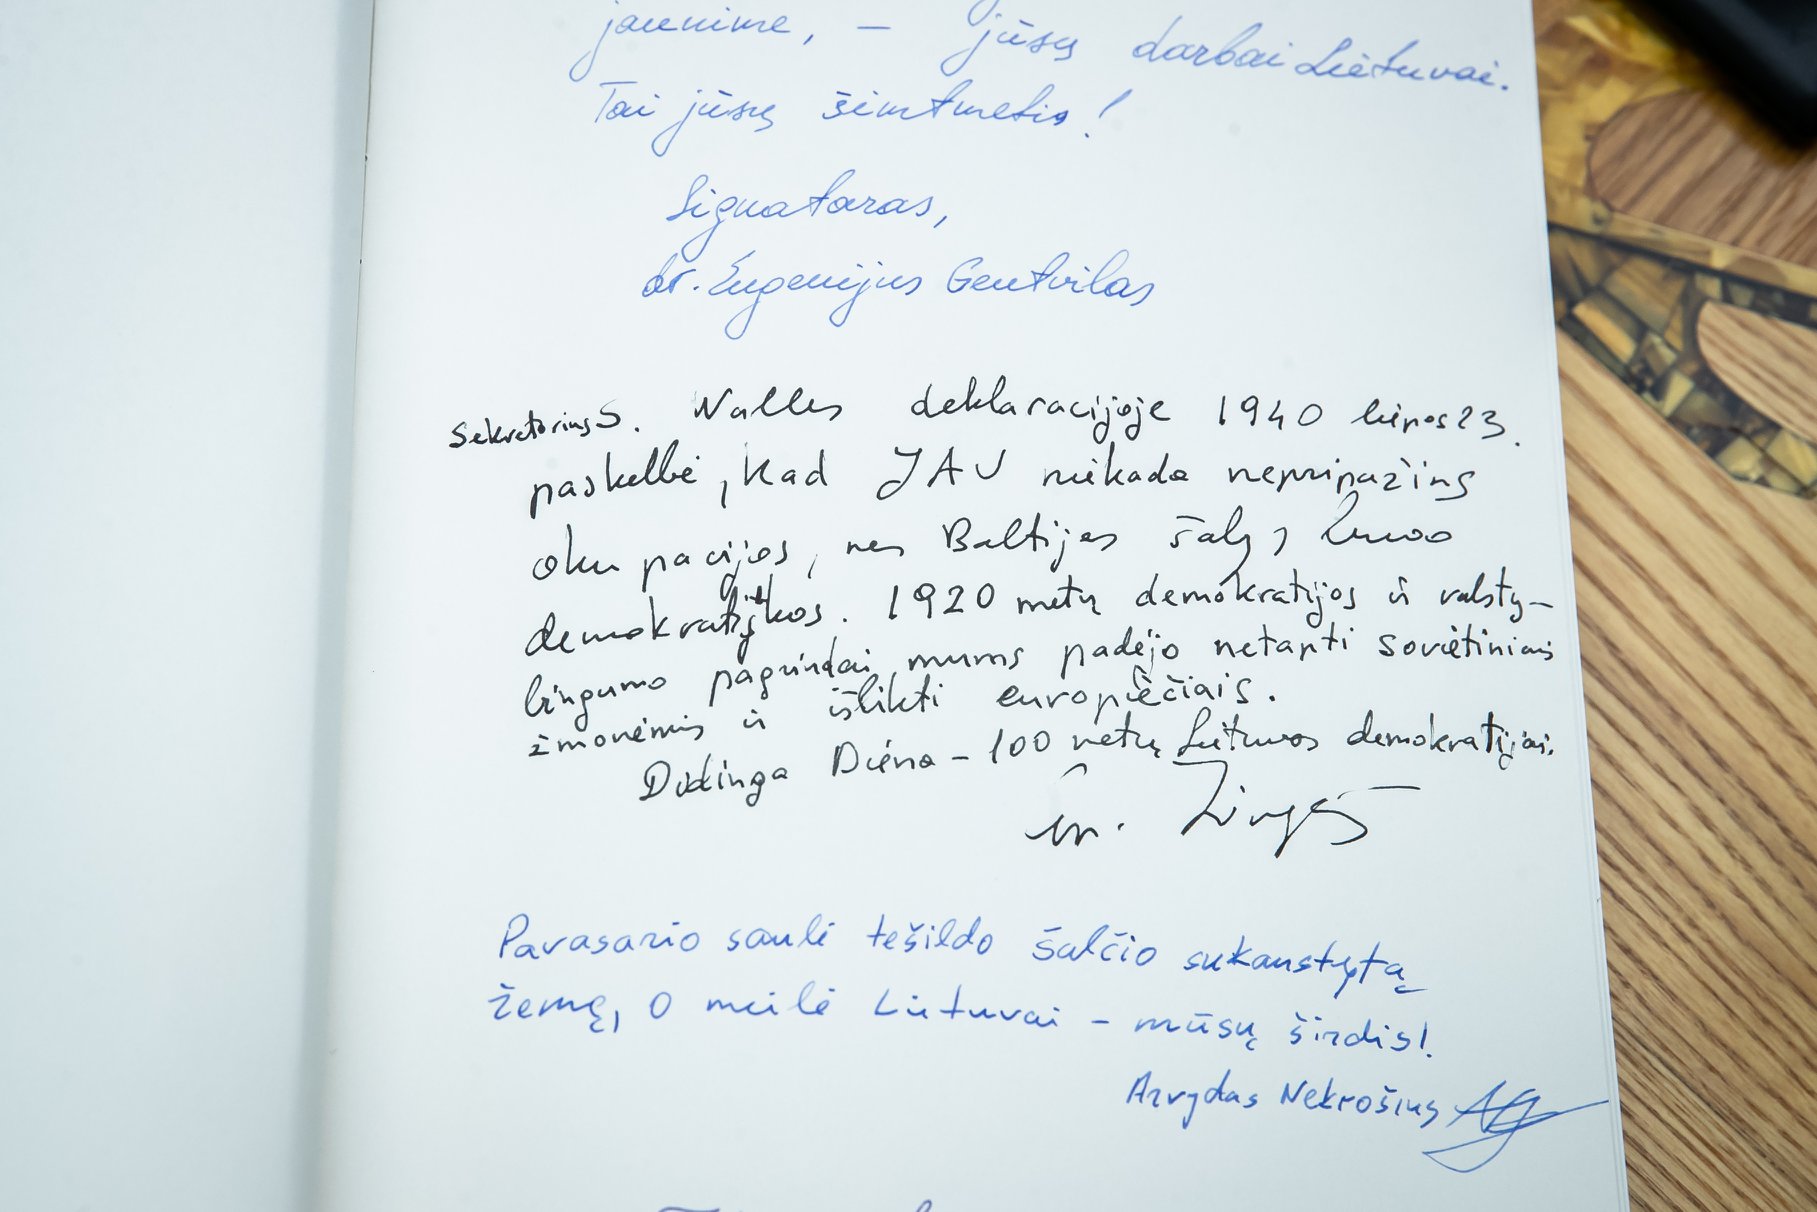 jaunime, – jūsų darbai Lietuvai.
Tai jūsų šimtmetis!
Signataras,
dr. Eugenijus Gentvilas
Sekretorius S. Welles deklaracijoje 1940 liepos 23.
paskelbė, kad JAV niekada nepripažins
okupacijos, nes Baltijos šalys buvo
demokratiškos. 1920 metų demokratijos ir valsty-
bingumo pagrindai mums padėjo netapti sovietiniais
žmonėmis ir išlikti europiečiais.
Didinga Diena – 100 metų Lietuvos demokratijai.
Em. Zingeris
Pavasario saulė tešildo šalčio sukaustytą
žemę, o meilė Lietuvai – mūsų širdis!
Arvydas Nekrošius